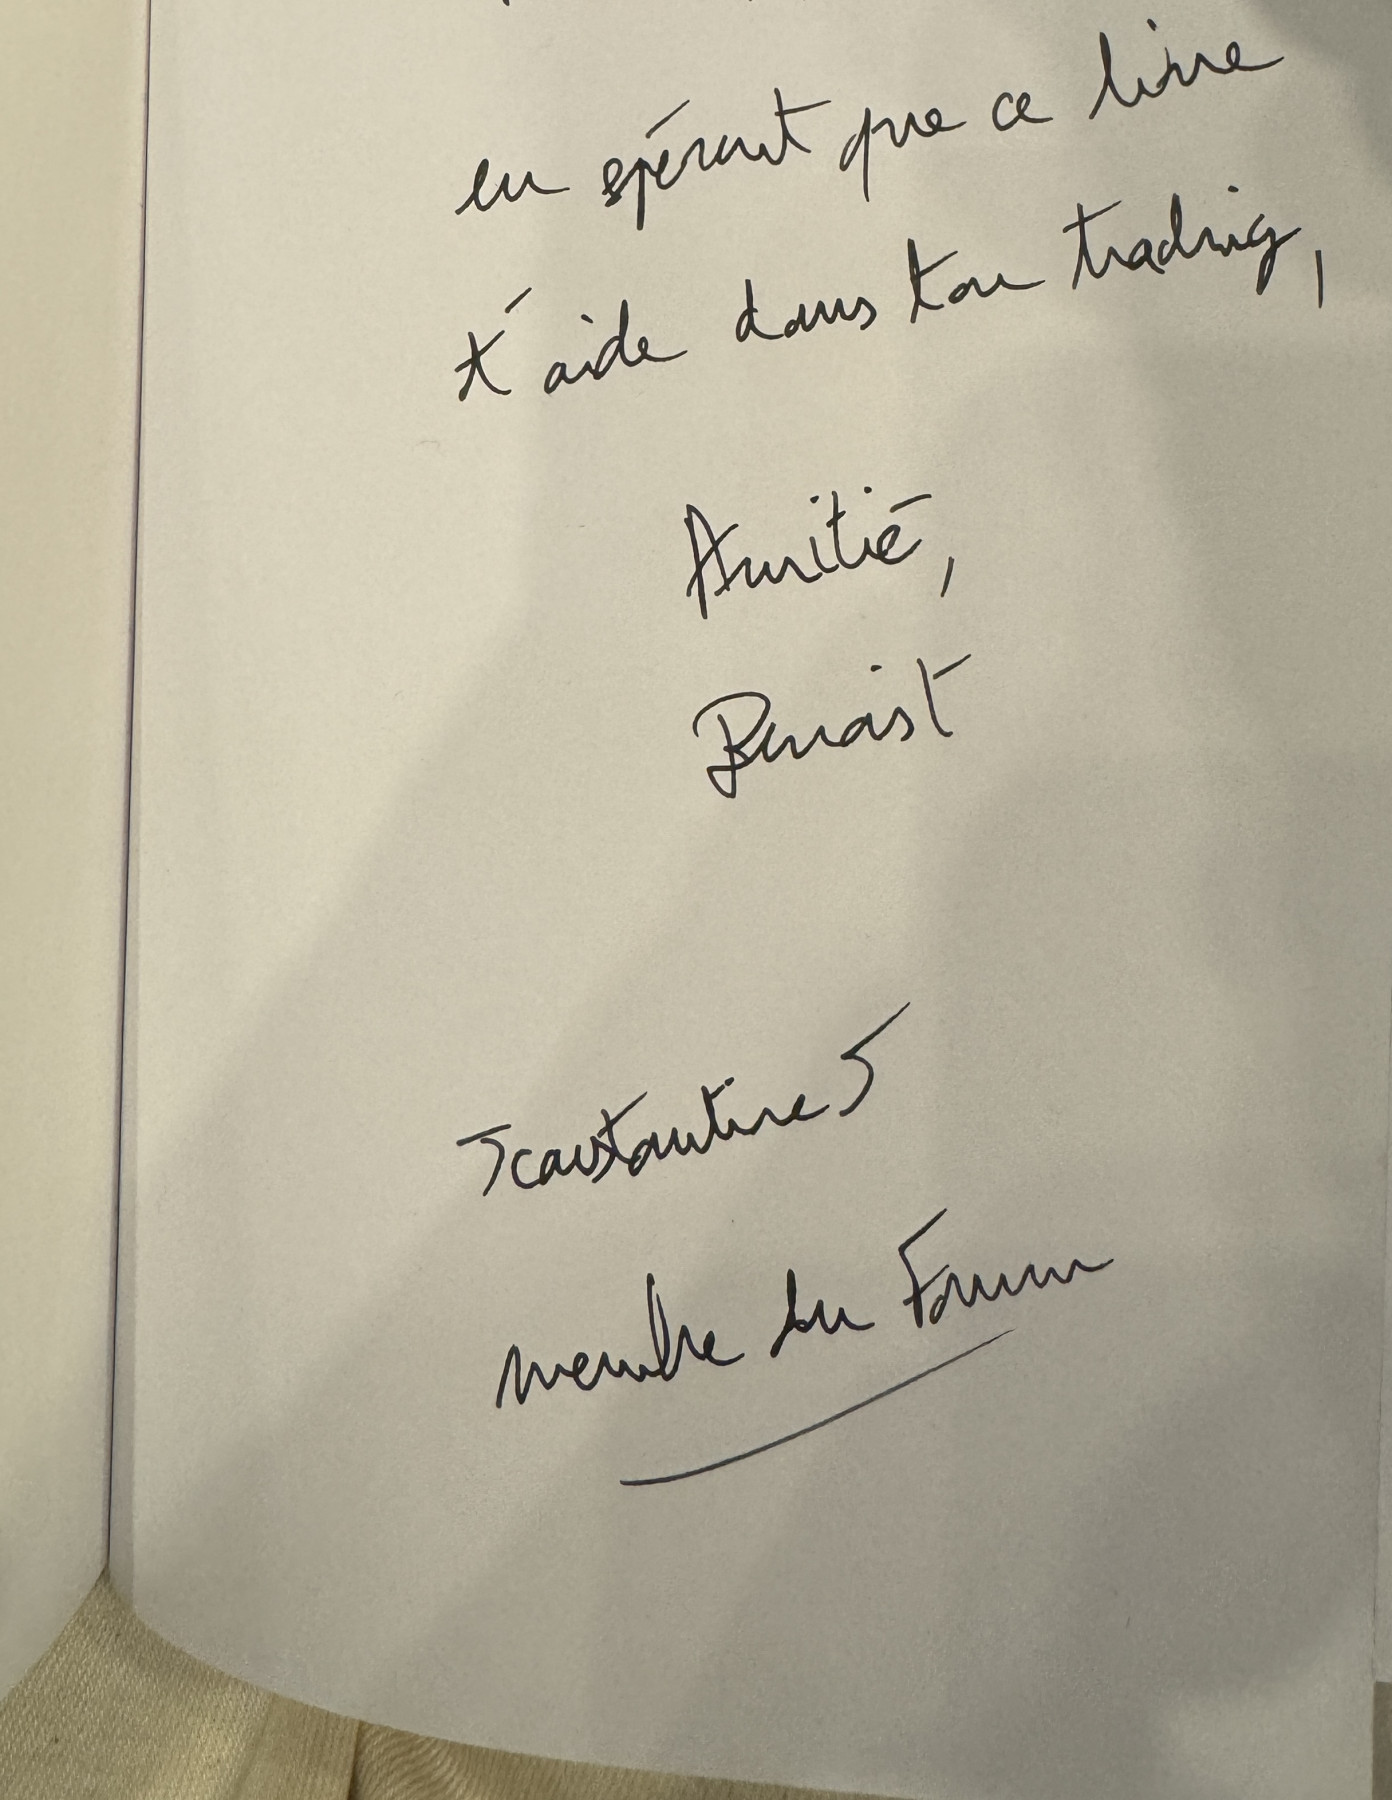 en espérant que ce livre
t'aide dans ton trading,
Amitié,
Benoist
membre du Forum